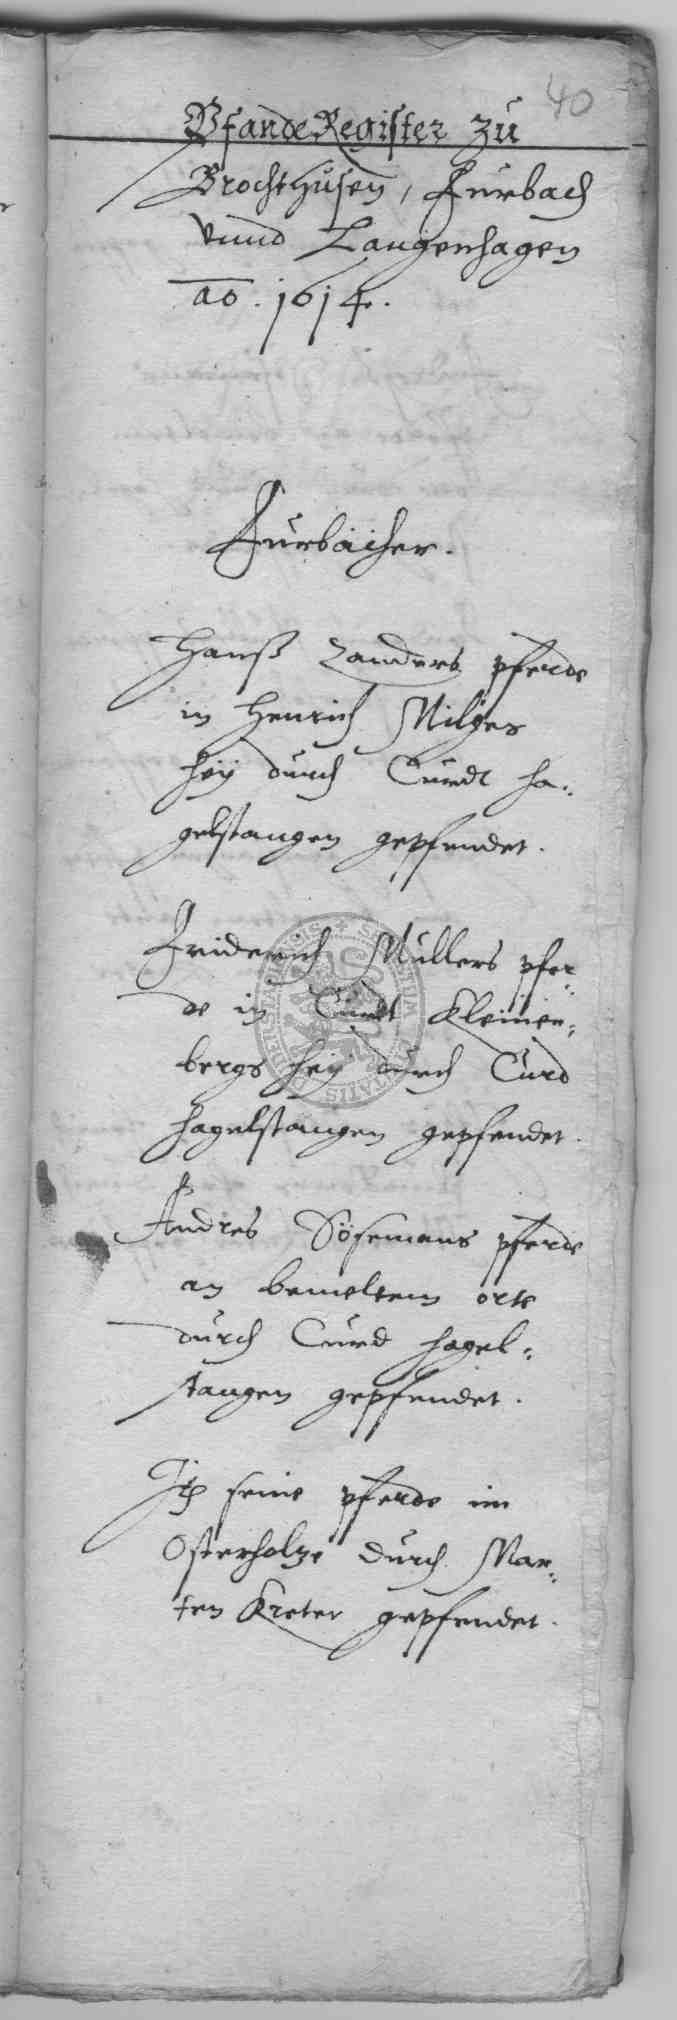 40
PfandeRegister zu
Brochthusen, Furbach
vnnd Langenhagen
ao. 1614.
Furbacher.
Hanß Zanders pferde
in Henrich Milges
hey durch Curdt Ha-
gelstangen gepfendet.
Friderich Müllers pfer-
de in Curdt Kleinen-
bergs hey durch Curd
Hagelstangen gepfendet.
Andres Sösemans pferde
an bemeltem orte
durch Curd Hagel-
stangen gepfendet.
It seine pferde im
Osterholze durch Mar-
ten Kreter gepfendet.